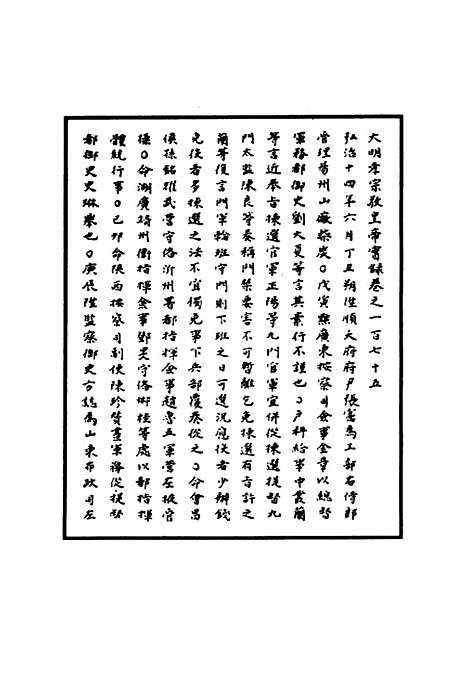 大明孝宗敬皇帝實錄卷之一百七十五
弘治十四年六月丁丑朔陞順天府府尹張憲為工部右侍郎
管理易州山廠柴炭○戊寅黜廣東按察司僉事金章以總督
軍務都御史劉大夏等言其素行不謹也○戶科給事中叢蘭
等言近奉旨揀選官軍正陽等九門官軍宜併從揀選提督九
門太監陳良等奏稱門禁要害不可暫離乞免揀選有旨許之
蘭等復言門軍輪班守門則下班之日可選況應役者少辦錢
免役者多揀選之法不宜獨免事下兵部覆奏從之○命會昌
侯孫銘振武營守備沂州署都指揮僉事趙忠五軍營左掖官
操○命湖廣靖州衛指揮僉事鄧旻守備郴桂等處以都指揮
體統行事○己卯命陝西按察司副使陳珍贊畫軍務從提督
都御史史琳舉也○庚辰陞監察御史方誌為山東布政司左